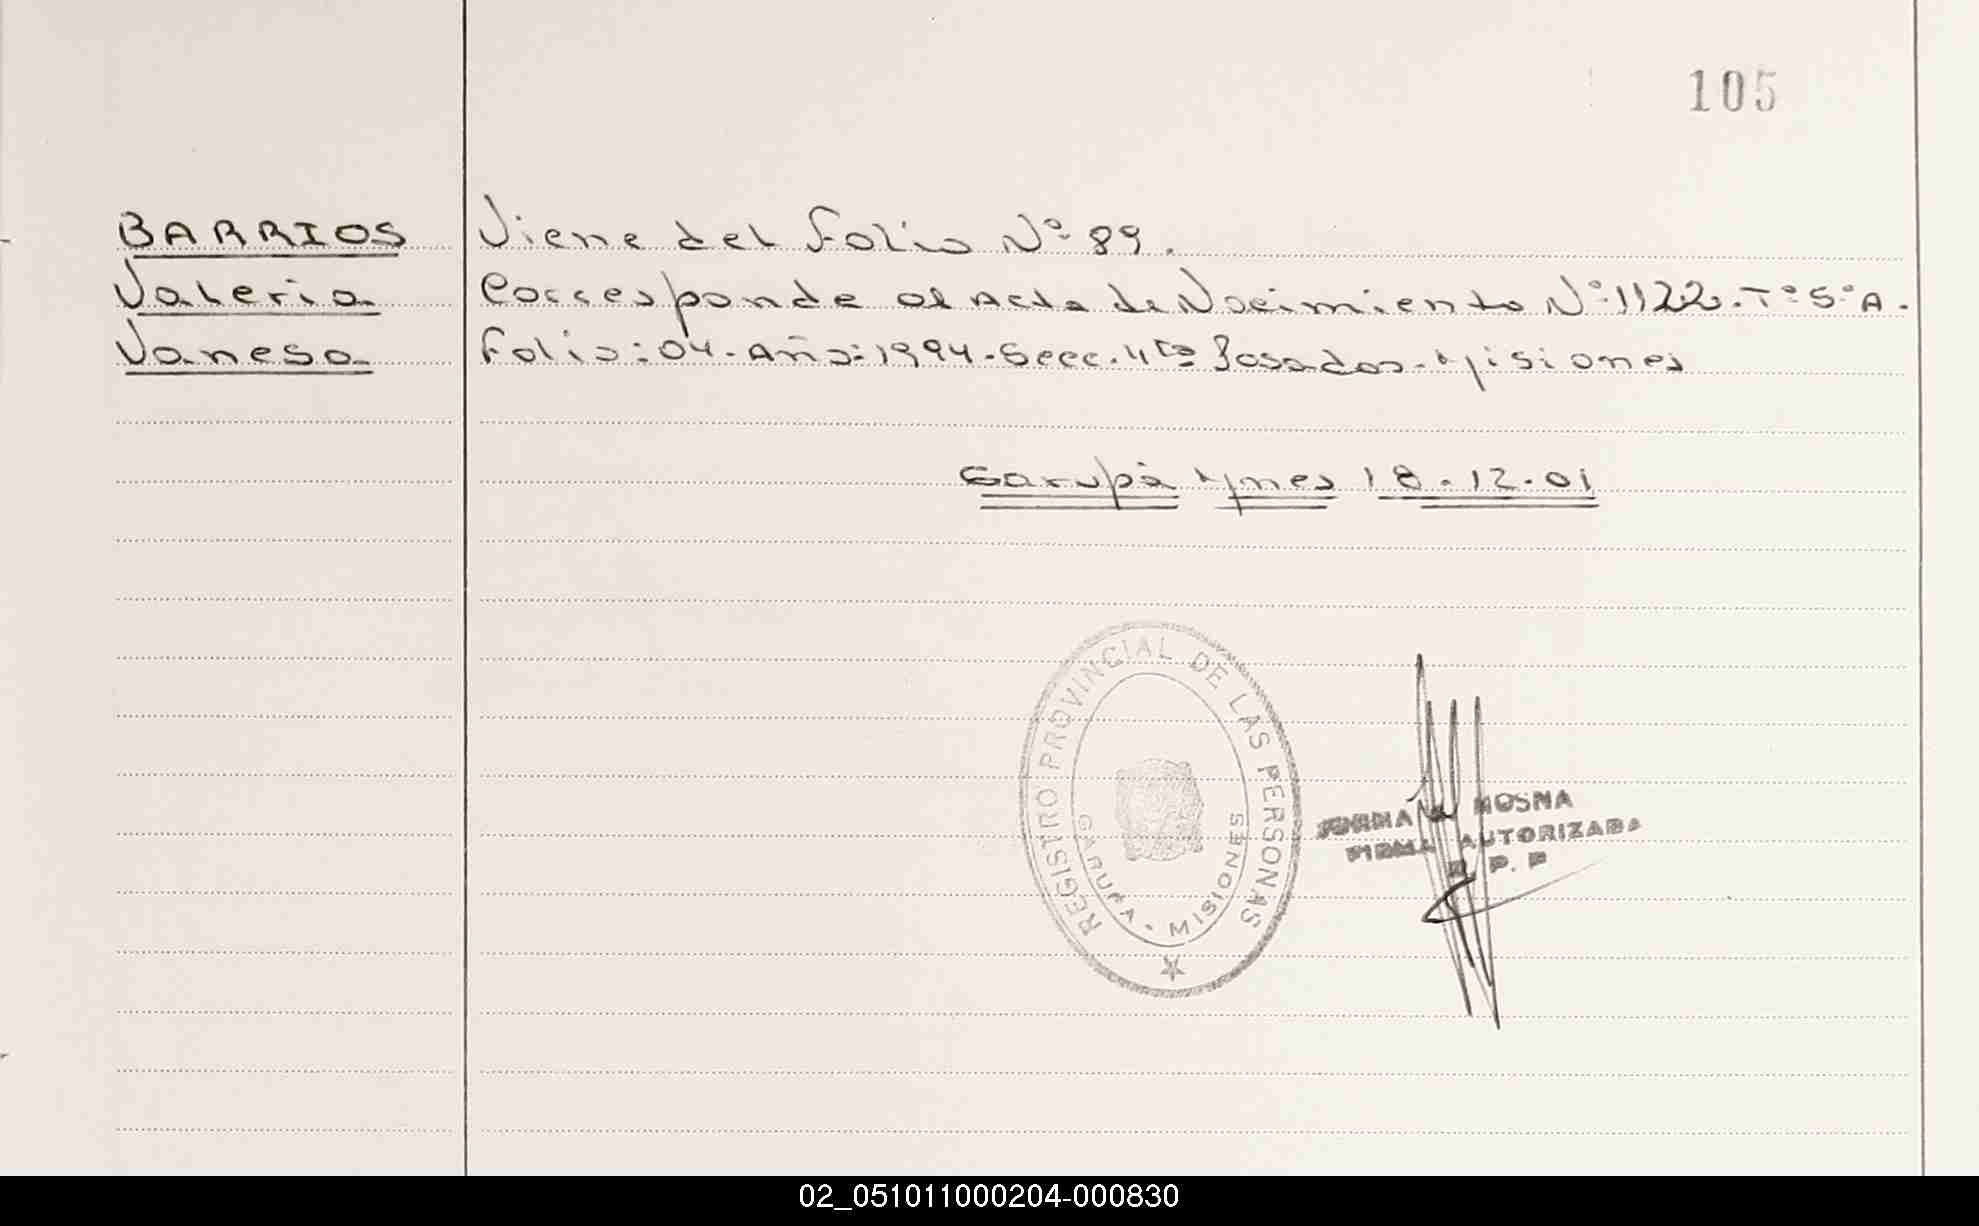 105
BARRIOS
Valeria
Vanesa
Viene del Folio Nº 89.
Corresponde al Acta de Nacimiento Nº 1122. Tº 5º A.
Folio: 04. Año: 1994. Secc. 4ta Posadas. Misiones
Garupá Mnes 18.12.01
REGISTRO PROVINCIAL DE LAS PERSONAS
GARUPA • MISIONES
MOSNA
FIRMA AUTORIZADA
R. P. P
02_051011000204-000830